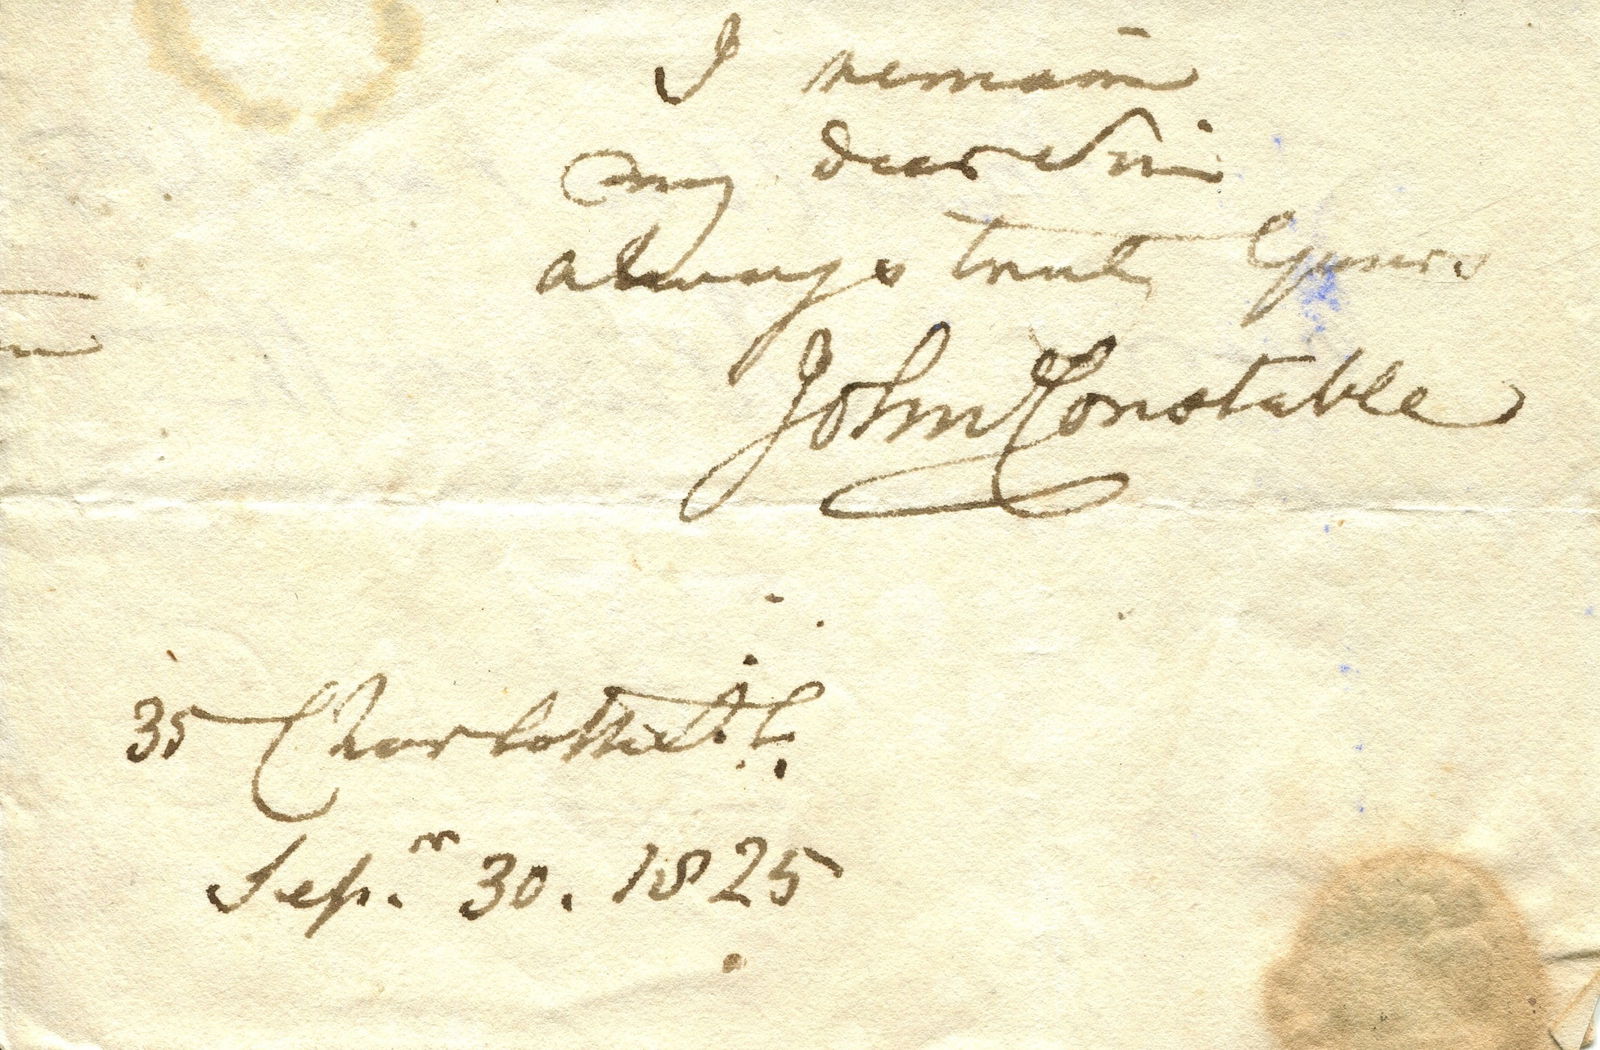 I remain
my dear Sir
always truly Yours
John Constable
35 Charlotte St.
Sepr. 30. 1825